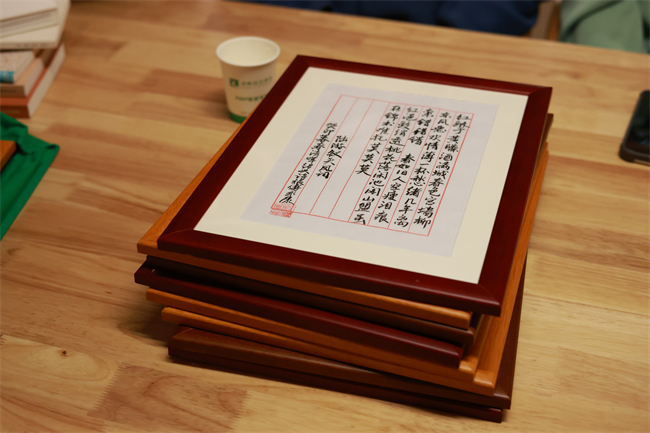 红酥手黄縢酒满城春色宫墙柳
东风恶欢情薄一杯愁绪几年离
索错错错 春如旧人空瘦泪痕
红浥鲛绡透桃花落闲池阁山盟虽
在锦书难托莫莫莫
陆游钗头凤词
癸卯春